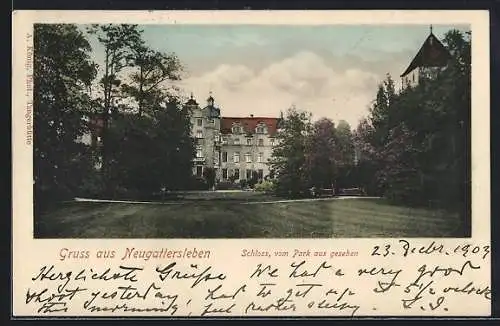 A. König, Phot., Tangerhütte
Gruss aus Neugattersleben
Schloss, vom Park aus gesehen
23. Decbr. 1903
Herzlichste Grüße We had a very good
shoot yesterday, had to get up at 4 o'clock
this morning, feel rather sleepy.